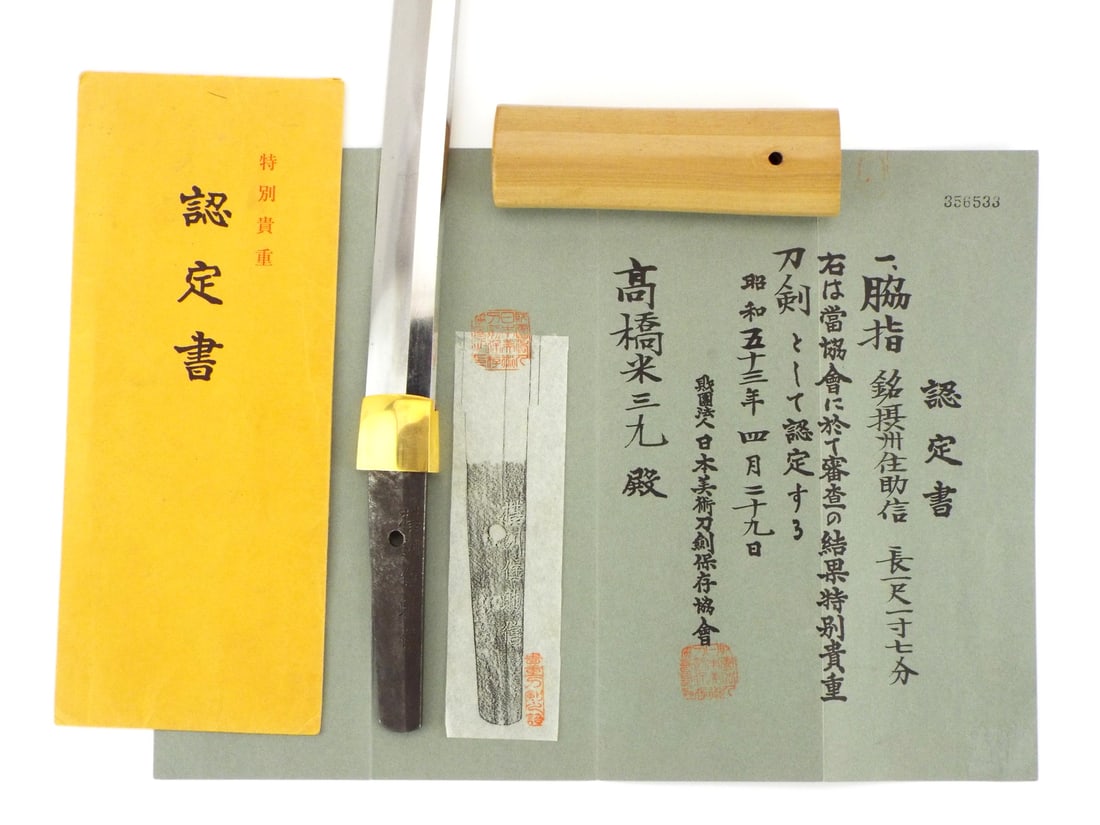 特別貴重
認定書
356533
認定書
一、脇指 銘摂州住助信 長一尺一寸七分
右は當協會に於て審査の結果特別貴重
刀剣として認定する
昭和五十三年四月二十九日
財團法人日本美術刀剣保存協會
髙橋米三九殿